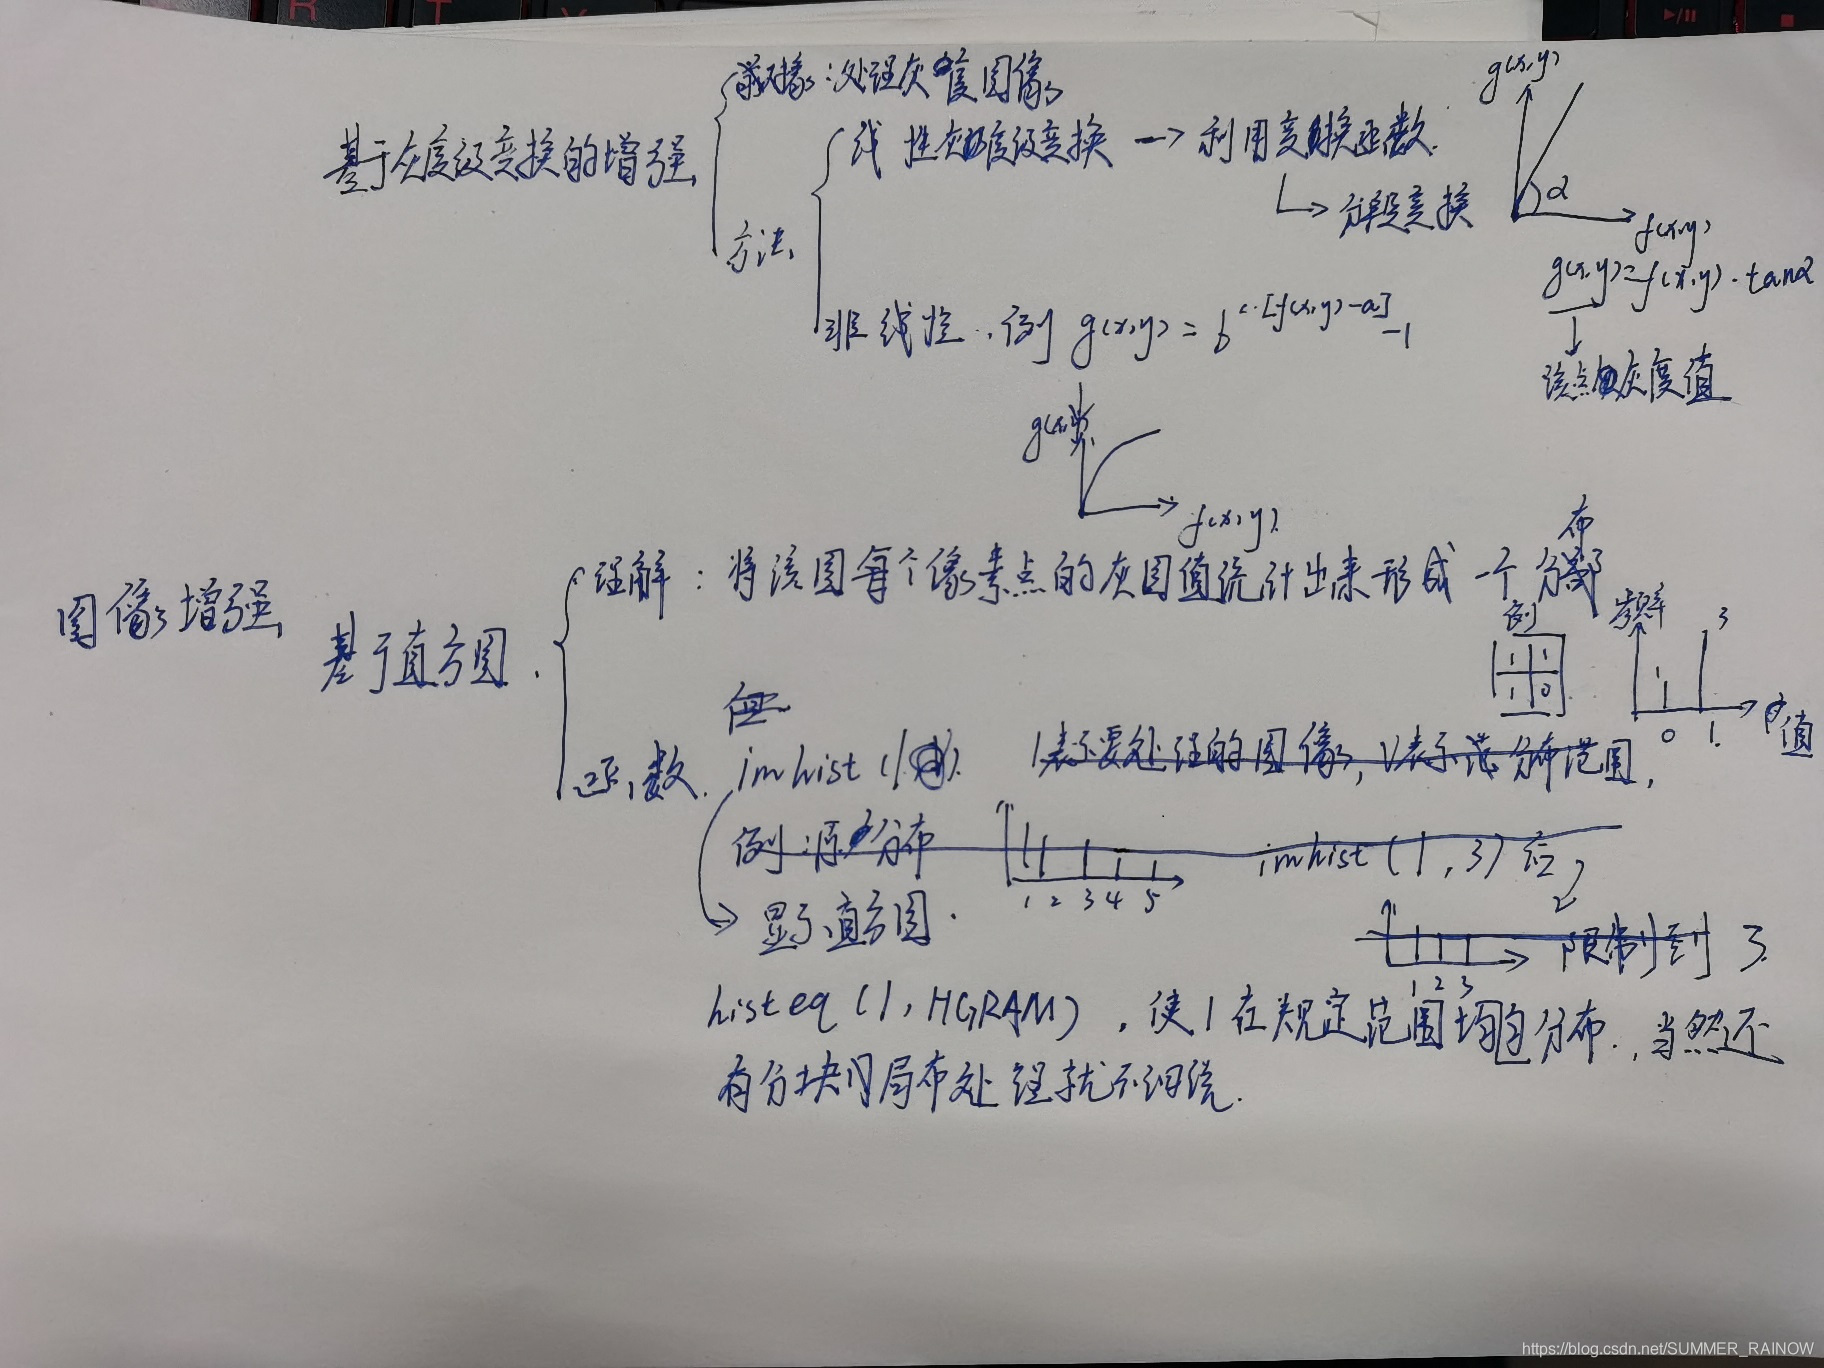 对象：处理灰度图像
基于灰度级变换的增强
线性灰度级变换 → 利用变换函数.
分段变换
方法
非线性. 例 g(x,y) = b^{c·[f(x,y)-a]} -1
g(x,y)
α
f(x,y)
g(x,y)=f(x,y)·tanα
该点的灰度值
g(x,y)
f(x,y)
图像增强
基于直方图.
理解：将该图每个像素点的灰图值统计出来形成一个分布
例
1 1
1 0
频率
1 3
0 1
值
函数.
imhist (I).
I表示要处理的图像, 表示 分布范围,
例：源分布
1 2 3 4 5
imhist (I,3) 后
1 2 3
限制到 3.
显示直方图.
histeq (I, HGRAM), 使I在规定范围均匀分布., 当然还
有分块的局布处理就不细说.
R T Y
https://blog.csdn.net/SUMMER_RAINOW